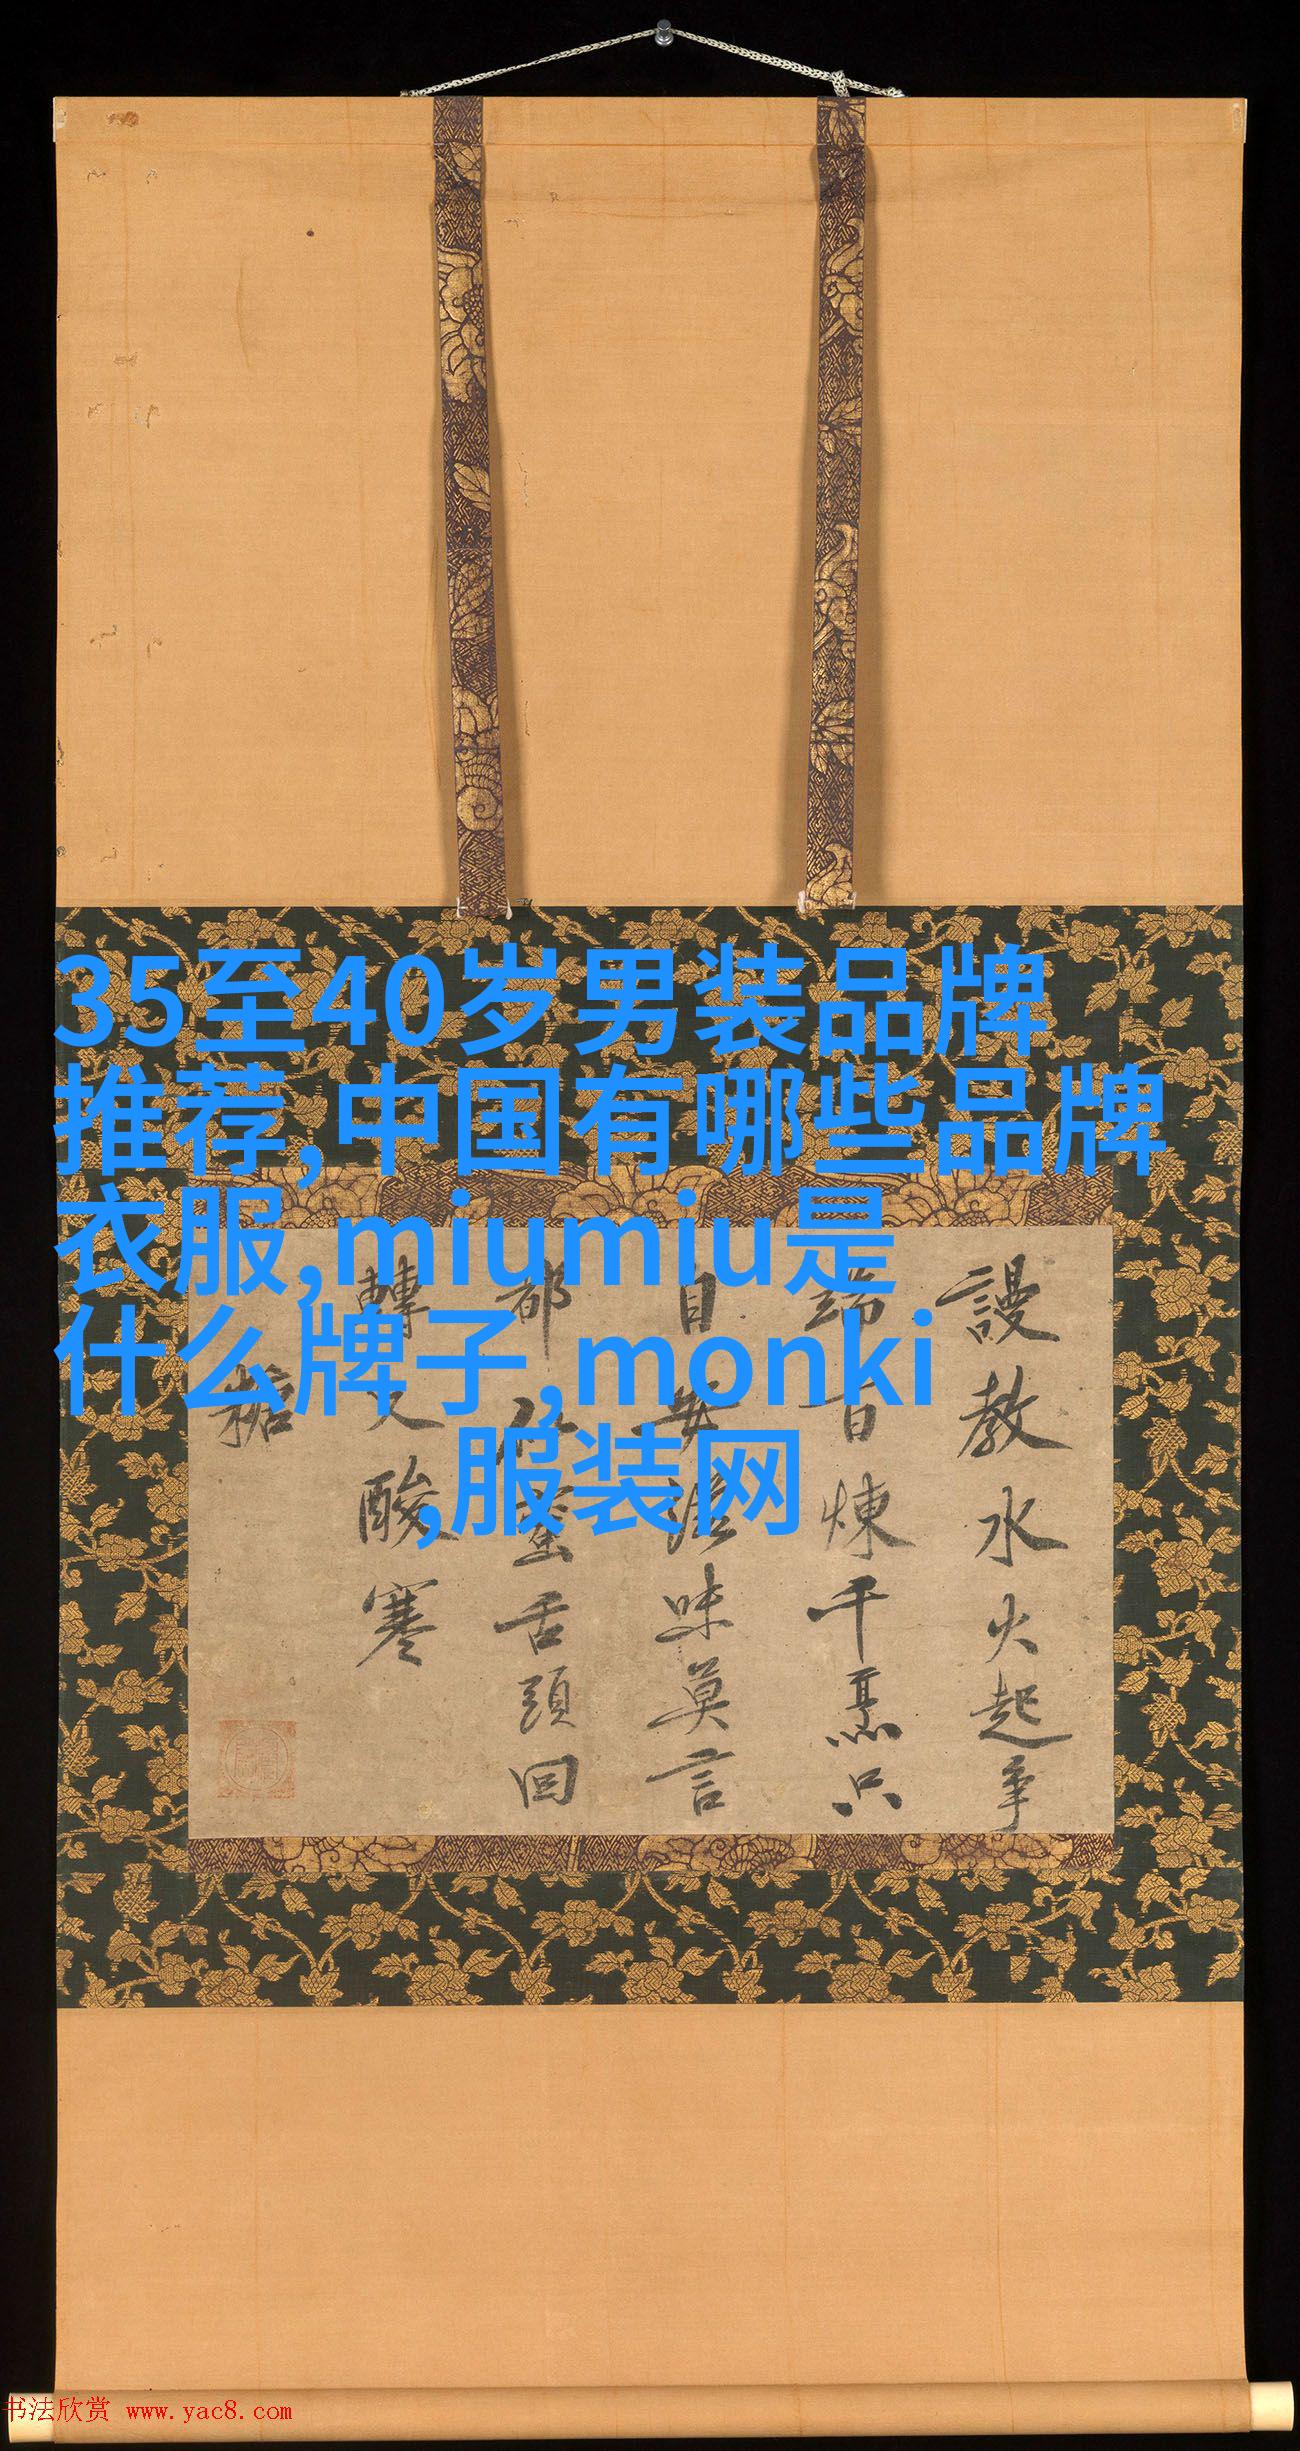 35至40岁男装品牌
推荐,中国有哪些品牌
衣服,miumiu是
什么牌子,monki
,服装网
謾教水火起爭
端百煉千烹只
自滋味莫言
都蜜舌頭回
轉又酸寒
糖
书法欣赏 www.yac8.com